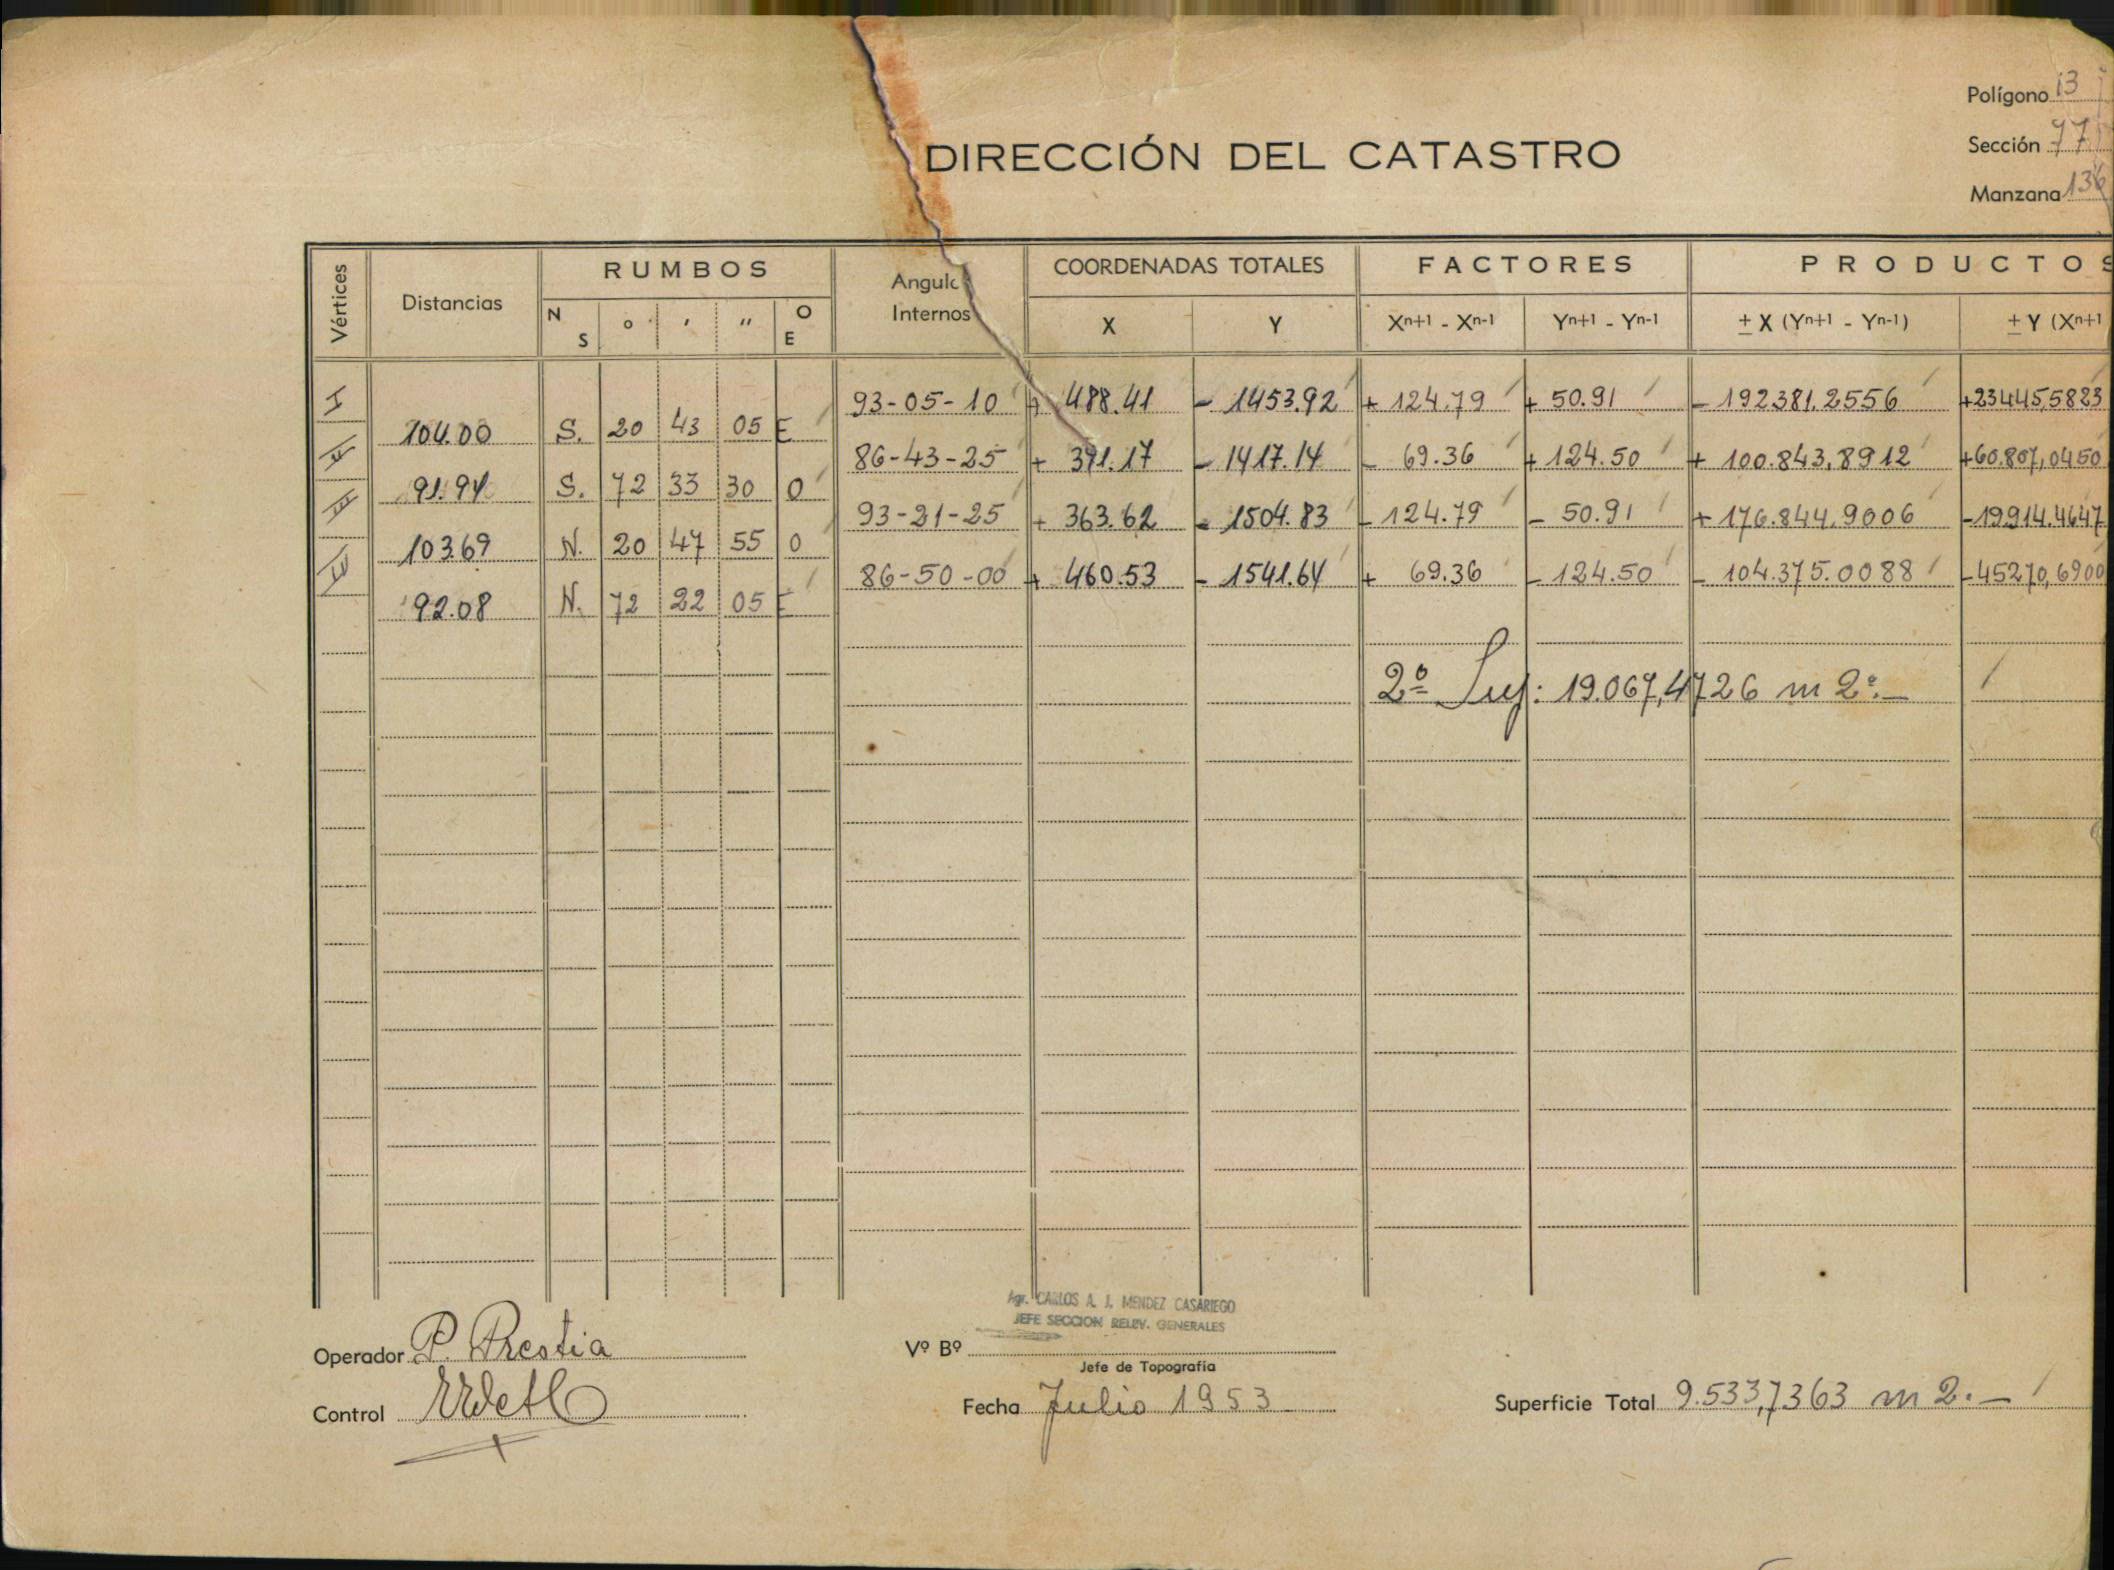 Polígono 13
DIRECCIÓN DEL CATASTRO
Sección 77
Manzana 136
Vértices Distancias RUMBOS Angulo Internos COORDENADAS TOTALES FACTORES PRODUCTOS
N S ° ' '' O E X Y Xn+1 - Xn-1 Yn+1 - Yn-1 ± X (Yn+1 - Yn-1) ± Y (Xn+1
I 93-05-10 + 488.41 - 1453.92 + 124.79 + 50.91 - 192381.2556 +234445,5823
104.00 S. 20 43 05 E
II 86-43-25 + 391.17 - 1417.14 - 69.36 + 124.50 + 100.843,8912 +60.807,0450
91.94 S. 72 33 30 O
III 93-21-25 + 363.62 - 1504.83 - 124.79 - 50.91 + 176.844,9006 -19914.4647
103.69 N. 20 47 55 O
IV 86-50-00 + 460.53 - 1541.64 + 69.36 - 124.50 - 104.375.0088 -45270,6900
92.08 N. 72 22 05 E
2º Sup: 19.067,4726 m 2º.—
Agr. CARLOS A. J. MENDEZ CASARIEGO
JEFE SECCION RELEV. GENERALES
Operador P. Prestia
Vº Bº
Jefe de Topografía
Control
Fecha Julio 1953
Superficie Total 9.533,7363 m 2.—